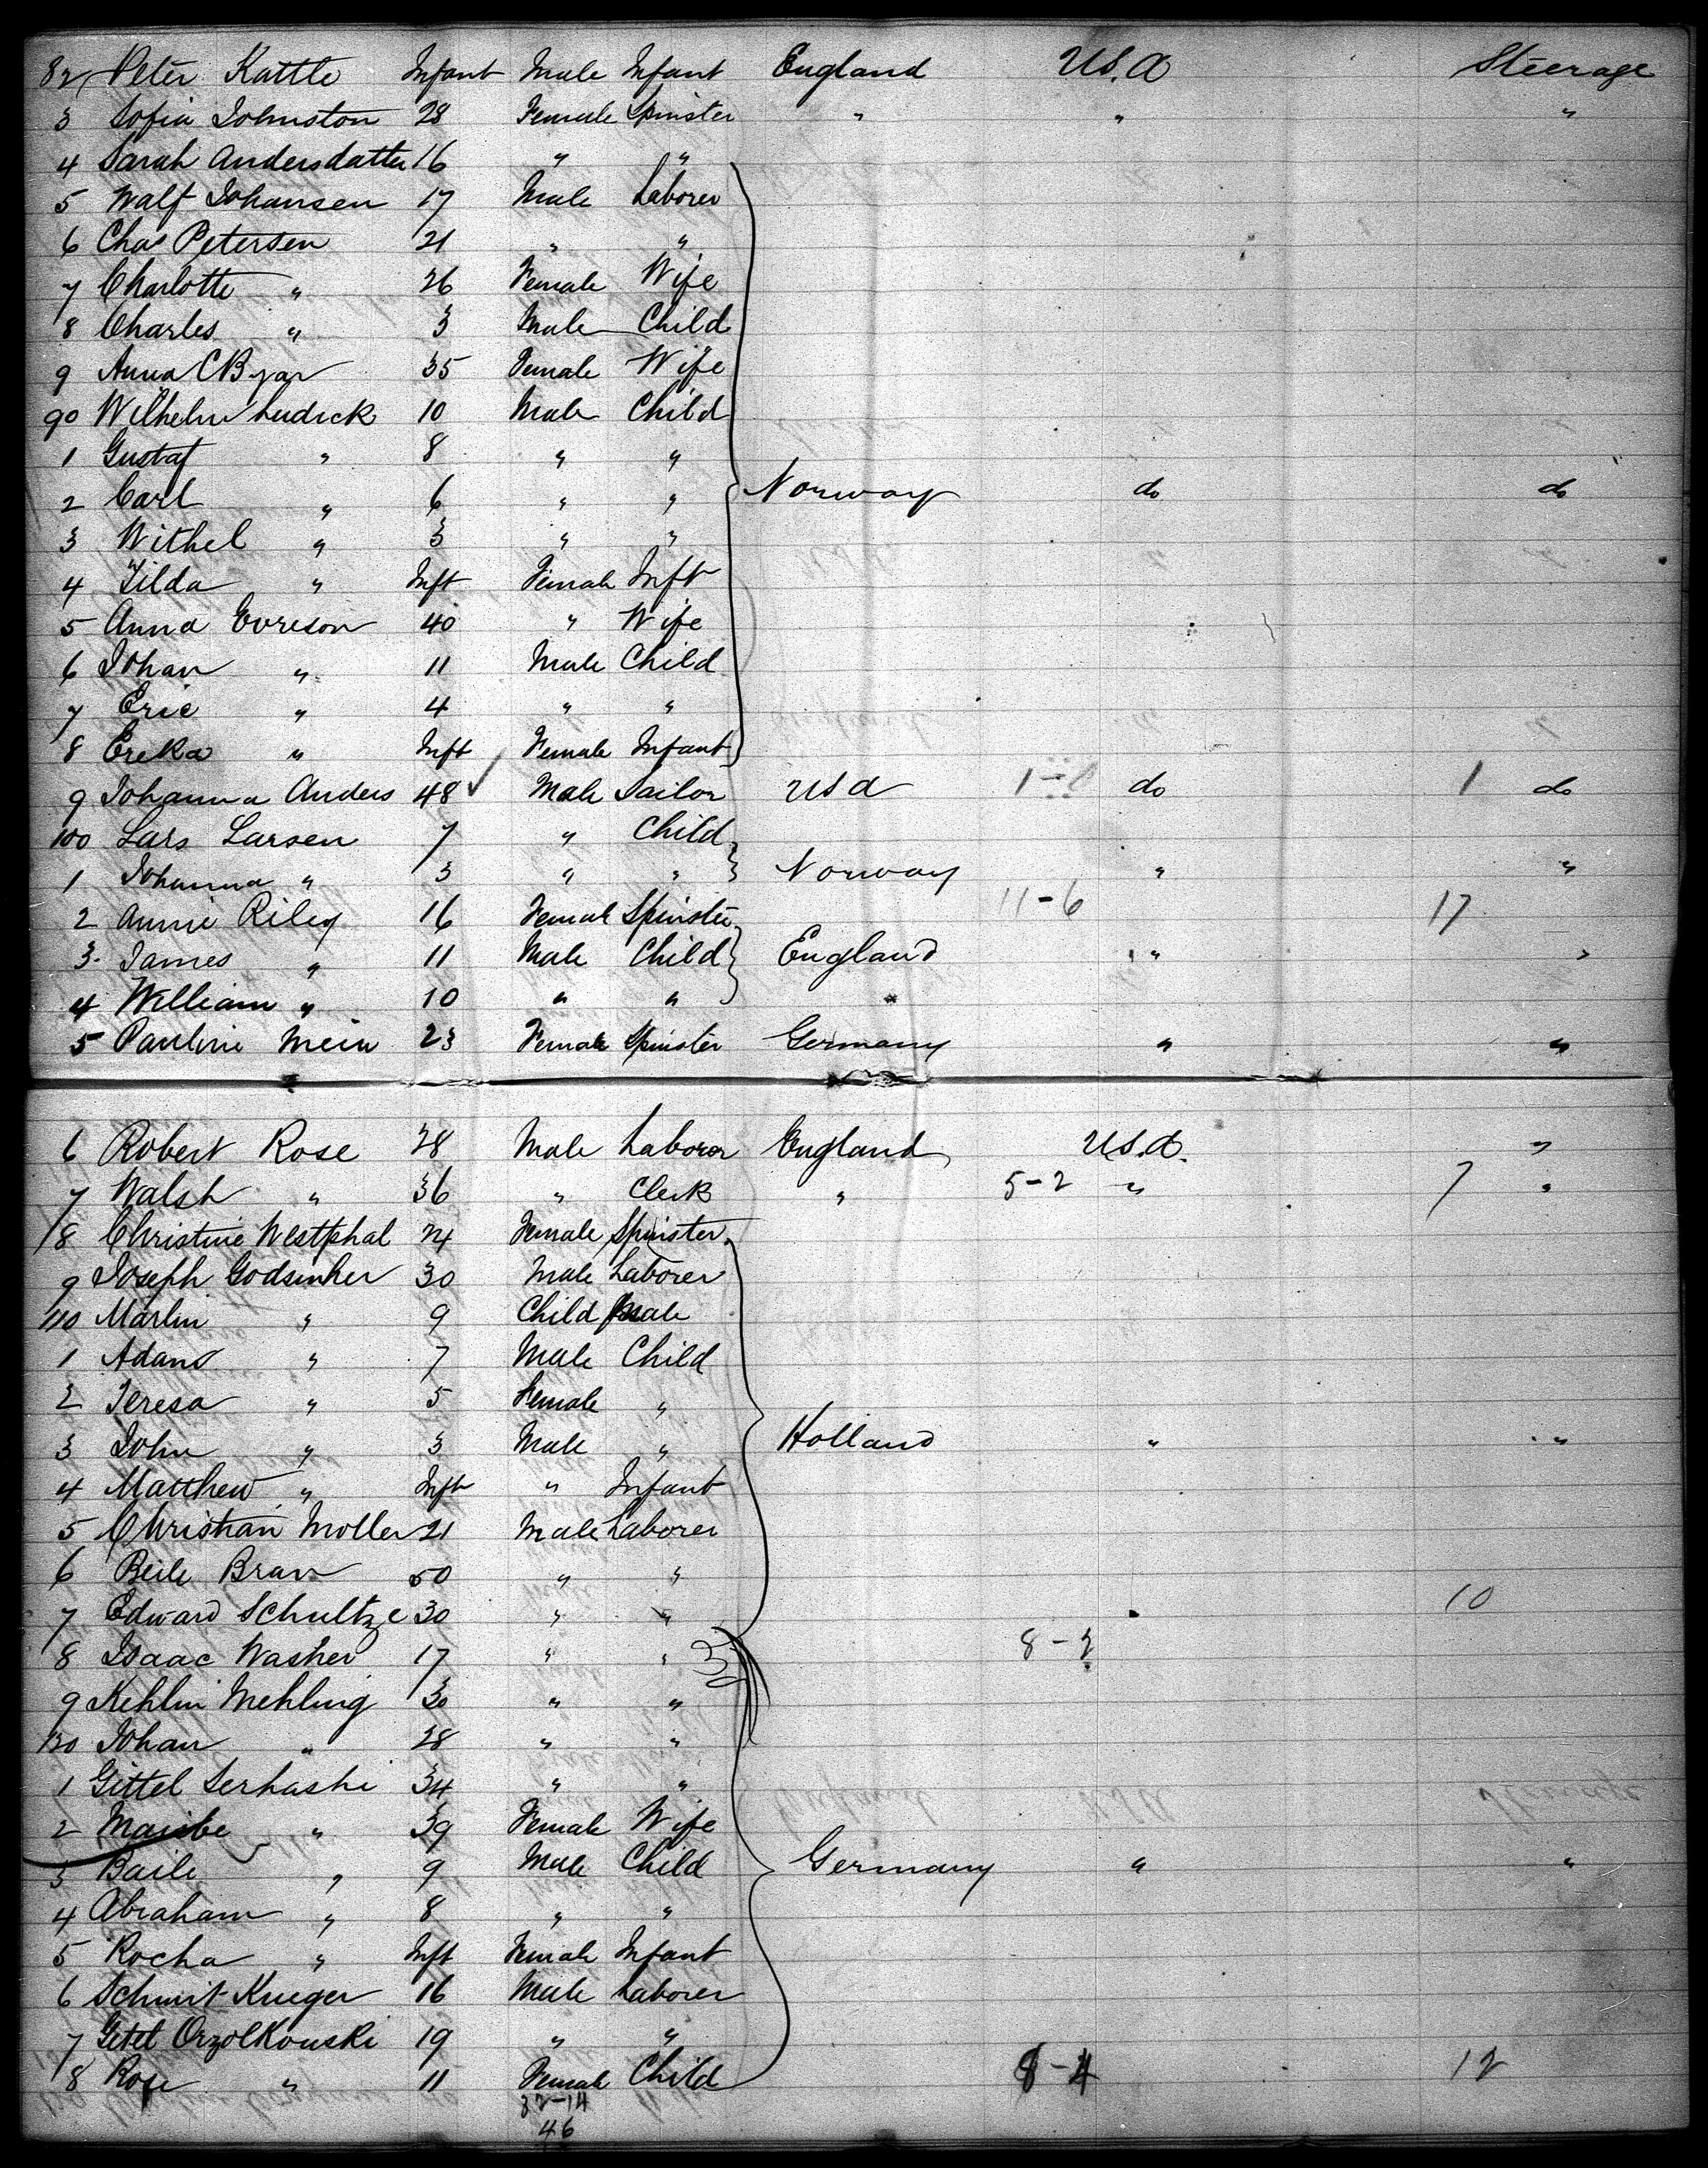 82 Peter Kattle Infant Male Infant England U.S.A Steerage
3 Sofia Johnston 28 Female Spinster " " "
4 Sarah Andersdatter 16 " "
5 Walf Johansen 17 Male Laborer
6 Chas Petersen 21 " "
7 Charlotte " 26 Female Wife
8 Charles " 3 Male Child
9 Anna C 35 Female Wife
90 Wilhelm Ludick 10 Male Child
1 Gustaf " 8 " "
2 Carl " 6 " " Norway do do
3 Withel " 3 " "
4 Tilda " Inft Female Inft
5 Anna Evreson 40 " Wife
6 Johan " 11 Male Child
7 Eric " 4 " "
8 Ereka " Inft Female Infant
9 Johanna Anders 48 ✓ Male Sailor USA do 1 do
100 Lars Larsen 7 " Child
1 Johanna " 3 " " Norway " "
2 Annie Riley 16 Female Spinster 11-6 17
3 James " 11 Male Child England " "
4 William " 10 " " "
5 Pauline Mein 23 Female Spinster Germany " "
6 Robert Rose 28 Male Laborer England U.S.A. "
7 Walsh " 36 " Clerk " 5-2 " 7 "
8 Christine Westphal 24 Female Spinster
9 Joseph Godsinher 30 Male Laborer
110 Marlin " 9 Child Male
1 Adam " 7 Male Child
2 Teresa " 5 Female "
3 John " 3 Male " Holland " "
4 Matthew " Inft " Infant
5 Christian Moller 21 Male Laborer
6 Beile Bran 50 " "
7 Edward Schultze 30 " " 10
8 Isaac Washer 17 " " 8-2
9 Kehlin Mehling 30 " "
120 Johan " 28 " "
1 Gittel Serhashi 34 " "
2 Maribe " 39 Female Wife
3 Baile " 9 Male Child Germany " "
4 Abraham " 8 " "
5 Rocha " Inft Female Infant
6 Schmit Krieger 16 Male Laborer
7 Getel Orzolkouski 19 " "
8 Rose " 11 Female Child 8-4 12
32-14
46